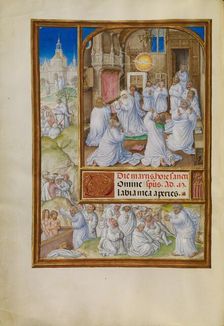 Die martis hore sancti
Domine spūs. Ad. m̄.
labia mea aperies.